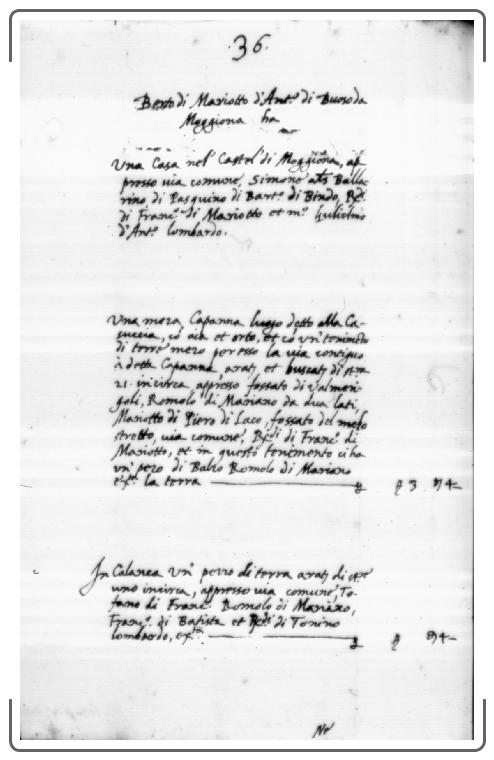 .36.
Berto di Mariotto d'Ant.º di Buoso da
Moggiona ha
Una Casa nel Castel di Moggiona, ap
presso via comune, Simone als Balla-
rino, di Pasquino di Bart.º di Bindo, Rdi.
di Franc.º di Mariotto et m.º Gulielmo
d'Ant.º lombardo.
Una meza, Capanna luogo detto alla Ca-
succia, cō aia et orto, et cō un tenimēto
di terre mezo per esso la via contiguo
à detta Capanna, arati et buscati di
21. incirca appresso fossato di Valmen-
goli, Romolo di Mariano da dua lati,
Mariotto di Piero di Laco, fossato del
stretto, via comune, Rdi di Franc.º di
Mariotto, et in questo tenimento ci ha
un pezo di Balzo Romolo di Mariano
la terra
3 4
In Calanca un pezzo di terra arati di
uno incirca, appresso via comune, To-
fano di Franc.º Romolo di Mariano,
Franc.º di Batista et Rdi di Tonino
lombardo,
4